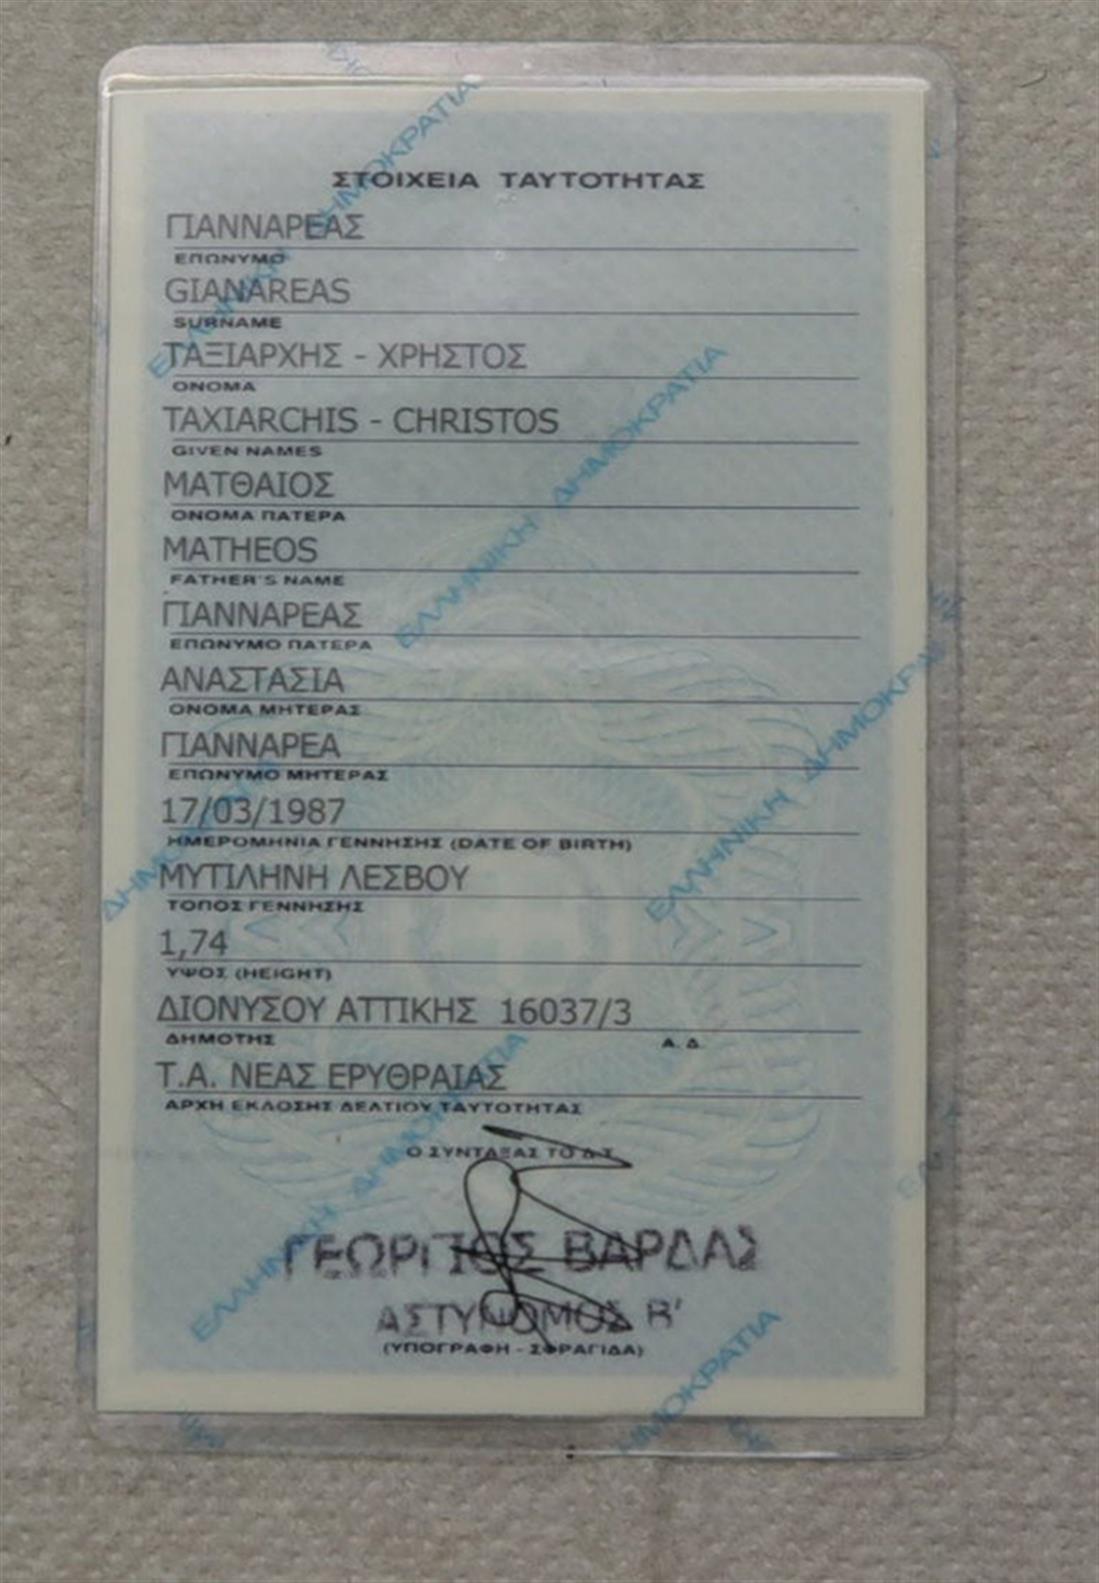 ΣΤΟΙΧΕΙΑ ΤΑΥΤΟΤΗΤΑΣ
ΓΙΑΝΝΑΡΕΑΣ
ΕΠΩΝΥΜΟ
GIANAREAS
SURNAME
ΤΑΞΙΑΡΧΗΣ - ΧΡΗΣΤΟΣ
ΟΝΟΜΑ
TAXIARCHIS - CHRISTOS
GIVEN NAMES
ΜΑΤΘΑΙΟΣ
ΟΝΟΜΑ ΠΑΤΕΡΑ
MATHEOS
FATHER'S NAME
ΓΙΑΝΝΑΡΕΑΣ
ΕΠΩΝΥΜΟ ΠΑΤΕΡΑ
ΑΝΑΣΤΑΣΙΑ
ΟΝΟΜΑ ΜΗΤΕΡΑΣ
ΓΙΑΝΝΑΡΕΑ
ΕΠΩΝΥΜΟ ΜΗΤΕΡΑΣ
17/03/1987
ΗΜΕΡΟΜΗΝΙΑ ΓΕΝΝΗΣΗΣ (DATE OF BIRTH)
ΜΥΤΙΛΗΝΗ ΛΕΣΒΟΥ
ΤΟΠΟΣ ΓΕΝΝΗΣΗΣ
1,74
ΥΨΟΣ (HEIGHT)
ΔΙΟΝΥΣΟΥ ΑΤΤΙΚΗΣ 16037/3
ΔΗΜΟΤΗΣ Α.Δ.
Τ.Α. ΝΕΑΣ ΕΡΥΘΡΑΙΑΣ
ΑΡΧΗ ΕΚΔΟΣΗΣ ΔΕΛΤΙΟΥ ΤΑΥΤΟΤΗΤΑΣ
Ο ΣΥΝΤΑΞΑΣ ΤΟ Δ.Τ.
ΓΕΩΡΓΙΟΣ ΒΑΡΔΑΣ
ΑΣΤΥΝΟΜΟΣ Β'
(ΥΠΟΓΡΑΦΗ - ΣΦΡΑΓΙΔΑ)
ΕΛΛΗΝΙΚΗ ΔΗΜΟΚΡΑΤΙΑ
ΕΛΛΗΝΙΚΗ ΔΗΜΟΚΡΑΤΙΑ
ΕΛΛΗΝΙΚΗ ΔΗΜΟΚΡΑΤΙΑ
ΕΛΛΗΝΙΚΗ ΔΗΜΟΚΡΑΤΙΑ